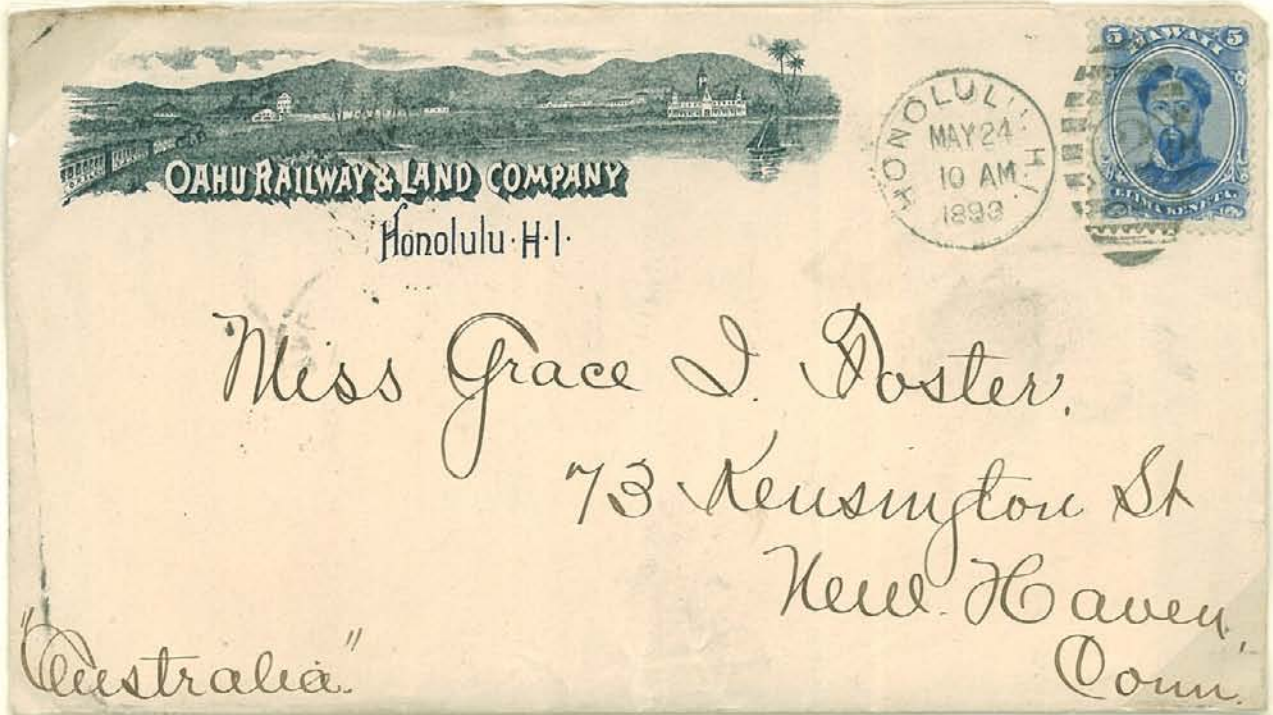 OAHU RAILWAY & LAND COMPANY
Honolulu · H · I ·
HONOLULU. H.I.
MAY 24
10 AM
1893
5 HAWAII 5
ELIMA KENETA.
Miss Grace I. Foster.
73 Kensington St
New. Haven,
Conn.
"Australia."